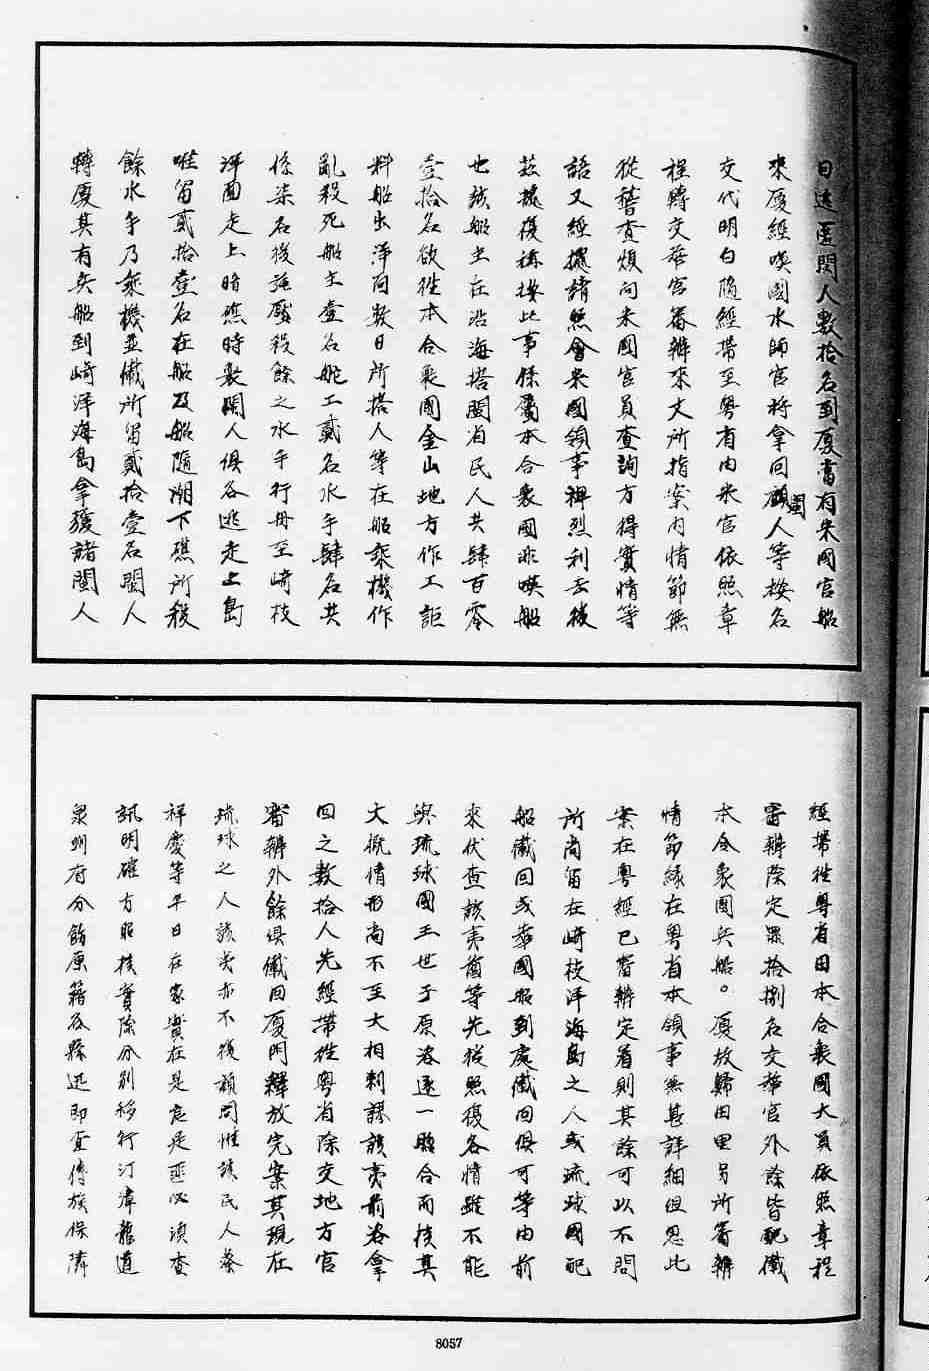 日送匪閩人數拾名到厦嘗有米國官船
來厦經嘆國水師官将拿回閩人等按名
交代明白隨經帶至粤省由米官依照章
程轉交華官審辦來文所指案内情節無
從稽查煩向米國官員查詢方得實情等
語又經擺請照會米國領事裨烈利去後
茲據復稱按此事係屬本合衆國非嘆船
也該船主在沿海搭閩省民人共肆百零
壹拾名欲往本合衆國金山地方作工詎
料船出洋面数日所搭人等在船乘機作
亂殺死船主壹名舵工貳名水手肆名共
係柒名後逼壓殺餘之水手行毋至﨑枝
洋面走上暗礁時衆閩人俱各逃走上島
唯留貳拾壹名在船及船隨潮下礁所殺
餘水手乃乘機並儎所留貳拾壹名閩人
轉厦其有兵船到﨑洋海島拿獲諸閩人
經帶往粤省由本合衆國大員依照章程
審辦除定罪拾捌名交華官外餘皆配儎
本合衆國兵船。厦放歸田里另所審辦
情節緣在粤省本領事無甚詳細但思此
案在粤經已審辦定着則其餘可以不問
所尚留在﨑枝洋海島之人或琉球國配
船儎回或華國船到處儎回俱可等由前
來伏查該夷酋等先後照復各情雖不能
與琉球國王世子原洛逐一脗合而核其
大概情形尚不至大相刺謬該夷前洛拿
回之數拾人先經帶往粤省除交地方官
審辦外餘俱儎回厦門釋放完案其現在
琉球之人該夷亦不復顧問惟該民人蔡
祥慶等平日在家實在是良是匪必須查
訊明確方昭核實除分別移行汀漳龍道
泉州府分飭原籍各縣迅即查傳族保隣
8057